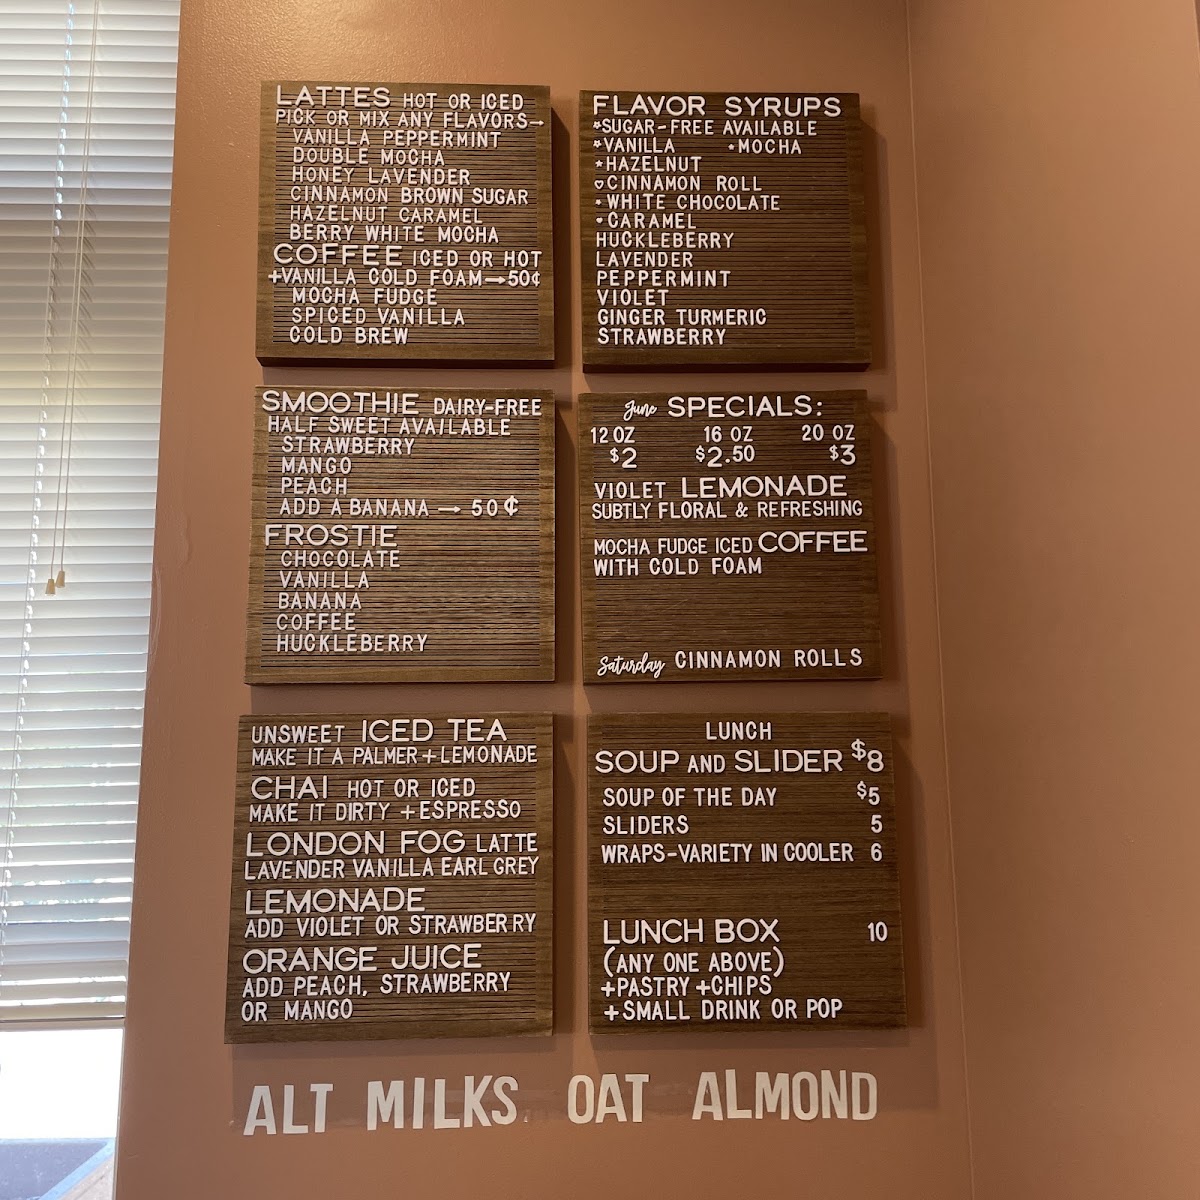 LATTES HOT OR ICED
PICK OR MIX ANY FLAVORS→
VANILLA PEPPERMINT
DOUBLE MOCHA
HONEY LAVENDER
CINNAMON BROWN SUGAR
HAZELNUT CARAMEL
BERRY WHITE MOCHA
COFFEE ICED OR HOT
+VANILLA COLD FOAM→50¢
MOCHA FUDGE
SPICED VANILLA
COLD BREW
FLAVOR SYRUPS
*SUGAR-FREE AVAILABLE
*VANILLA *MOCHA
*HAZELNUT
♡CINNAMON ROLL
*WHITE CHOCOLATE
*CARAMEL
HUCKLEBERRY
LAVENDER
PEPPERMINT
VIOLET
GINGER TURMERIC
STRAWBERRY
SMOOTHIE DAIRY-FREE
HALF SWEET AVAILABLE
STRAWBERRY
MANGO
PEACH
ADD A BANANA → 50¢
FROSTIE
CHOCOLATE
VANILLA
BANANA
COFFEE
HUCKLEBERRY
June SPECIALS:
12 OZ 16 OZ 20 OZ
$2 $2.50 $3
VIOLET LEMONADE
SUBTLY FLORAL & REFRESHING
MOCHA FUDGE ICED COFFEE
WITH COLD FOAM
Saturday CINNAMON ROLLS
UNSWEET ICED TEA
MAKE IT A PALMER +LEMONADE
CHAI HOT OR ICED
MAKE IT DIRTY +ESPRESSO
LONDON FOG LATTE
LAVENDER VANILLA EARL GREY
LEMONADE
ADD VIOLET OR STRAWBERRY
ORANGE JUICE
ADD PEACH, STRAWBERRY
OR MANGO
LUNCH
SOUP AND SLIDER $8
SOUP OF THE DAY $5
SLIDERS 5
WRAPS-VARIETY IN COOLER 6
LUNCH BOX 10
(ANY ONE ABOVE)
+PASTRY +CHIPS
+SMALL DRINK OR POP
ALT MILKS OAT ALMOND